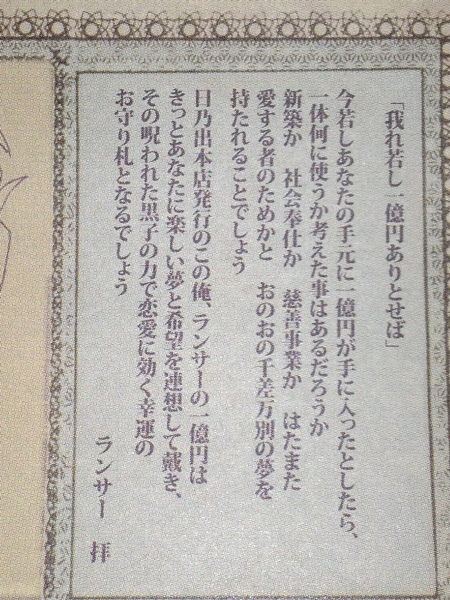 「我れ若し一億円ありとせば」
今若しあなたの手元に一億円が手に入ったとしたら、
一体何に使うか考えた事はあるだろうか
新築か　社会奉仕か　慈善事業か　はたまた
愛する者のためかと　おのおの千差万別の夢を
持たれることでしょう
日乃出本店発行のこの俺、ランサーの一億円は
きっとあなたに楽しい夢と希望を連想して戴き、
その呪われた黒子の力で恋愛に効く幸運の
お守り札となるでしょう
ランサー　拝